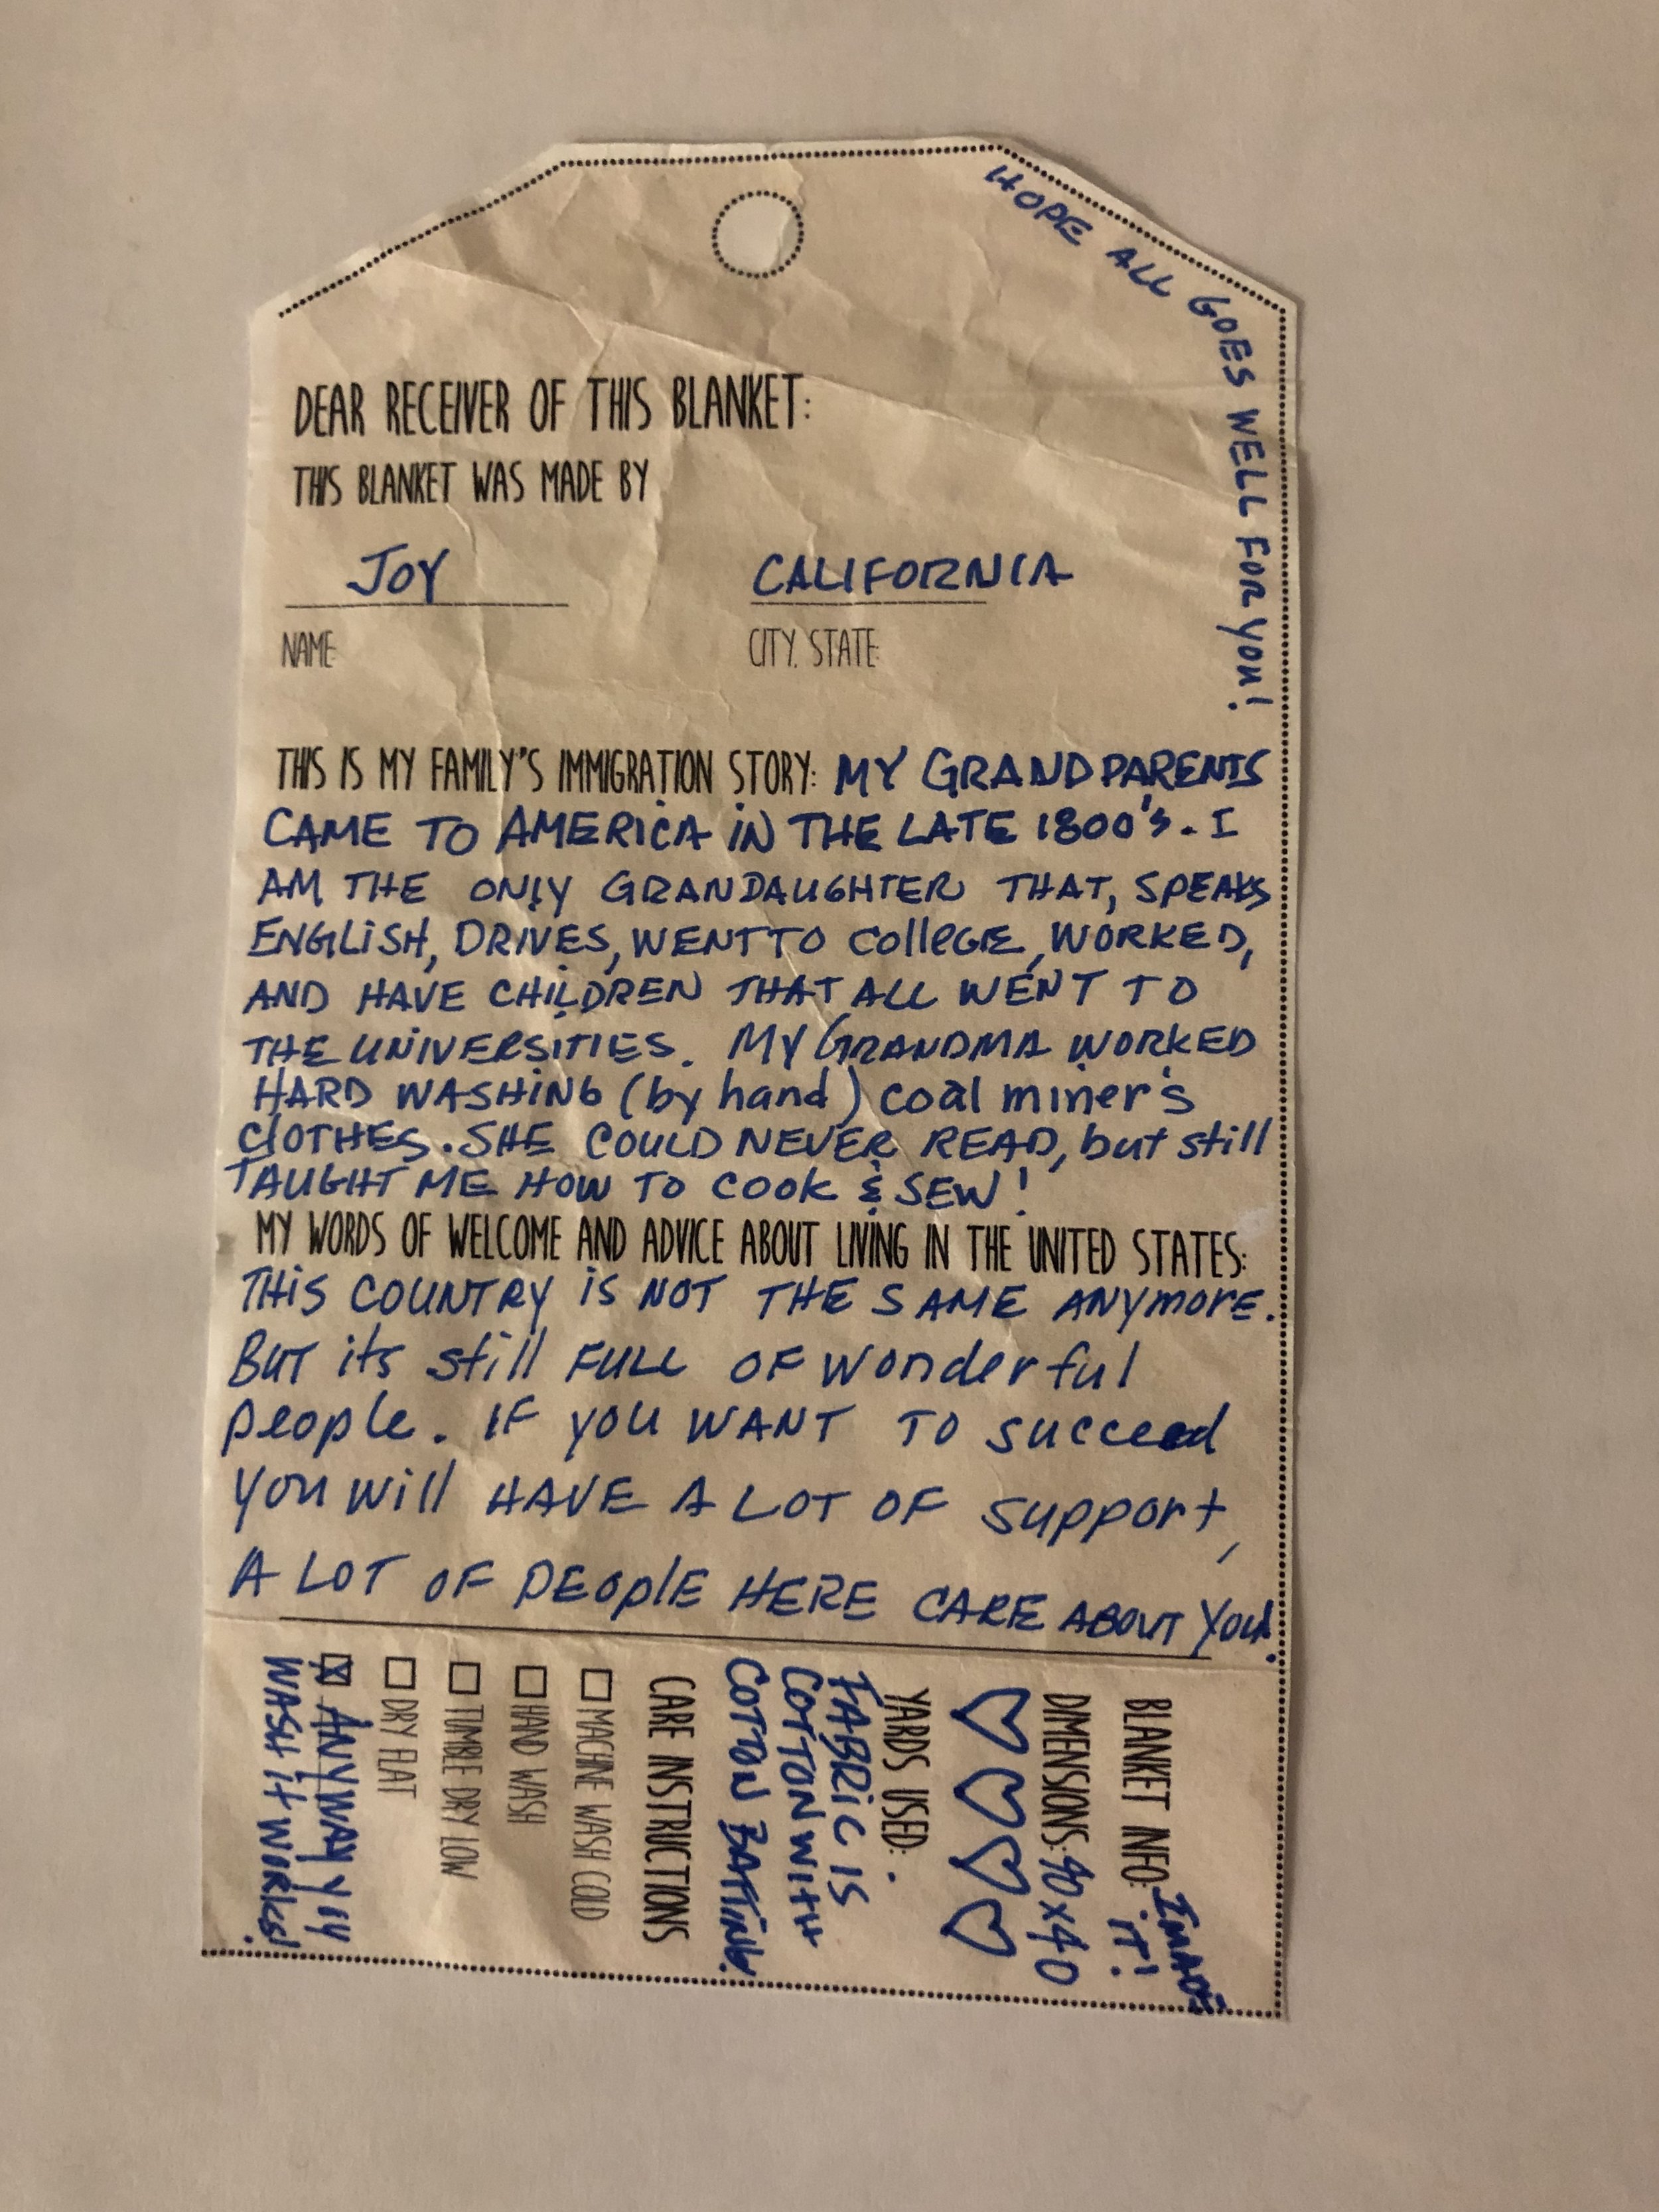 HOPE ALL GOES WELL FOR YOU!
DEAR RECEIVER OF THIS BLANKET:
THIS BLANKET WAS MADE BY
JOY CALIFORNIA
NAME: CITY, STATE:
THIS IS MY FAMILY'S IMMIGRATION STORY: MY GRANDPARENTS
CAME TO AMERICA IN THE LATE 1800's. I
AM THE ONLY GRANDAUGHTER THAT, SPEAKS
ENGLISH, DRIVES, WENT TO COllEGE, WORKED,
AND HAVE CHILDREN THAT ALL WENT TO
THE UNIVERSITIES. MY GRANDMA WORKED
HARD WASHING (by hand) coal miner's
ClOTHES. SHE COULD NEVER READ, but still
TAUGHT ME HOW TO COOK & SEW!
MY WORDS OF WELCOME AND ADVICE ABOUT LIVING IN THE UNITED STATES:
THIS COUNTRY IS NOT THE SAME ANYmorE.
BUT its still FULL OF wonderful
people. IF YOU WANT TO succeed
you will HAVE A LOT OF support,
A LOT OF PEOplE HERE CARE ABOUT YOU!
BLANKET INFO: I MADE
iT!
DIMENSIONS: 40 x 40
YARDS USED:
FABRIC IS
COTTON WITH
COTTON BATTING.
CARE INSTRUCTIONS
MACHINE WASH COLD
HAND WASH
TUMBLE DRY LOW
DRY FLAT
ANYWAY
WASH IT WORKS!